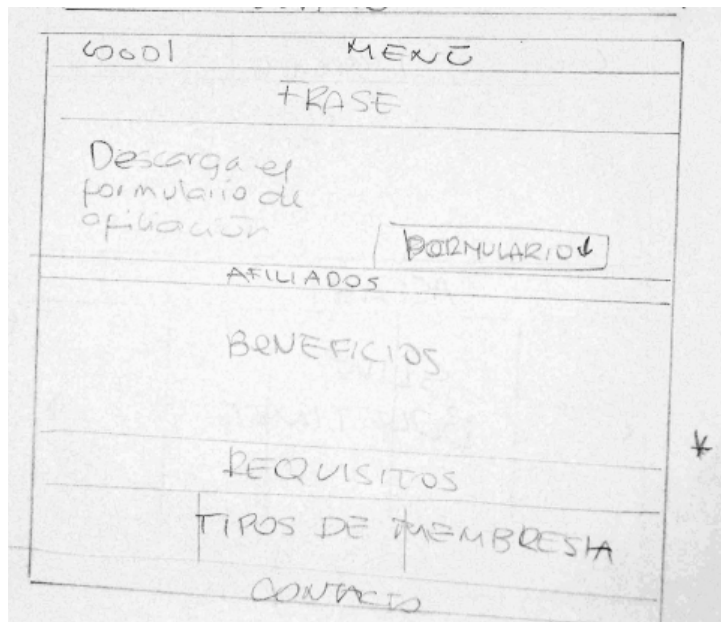 MENÚ
FRASE
Descarga el
formulario de
afiliación
FORMULARIO
AFILIADOS
BENEFICIOS
REQUISITOS
TIPOS DE MEMBRESIA
CONTACTO